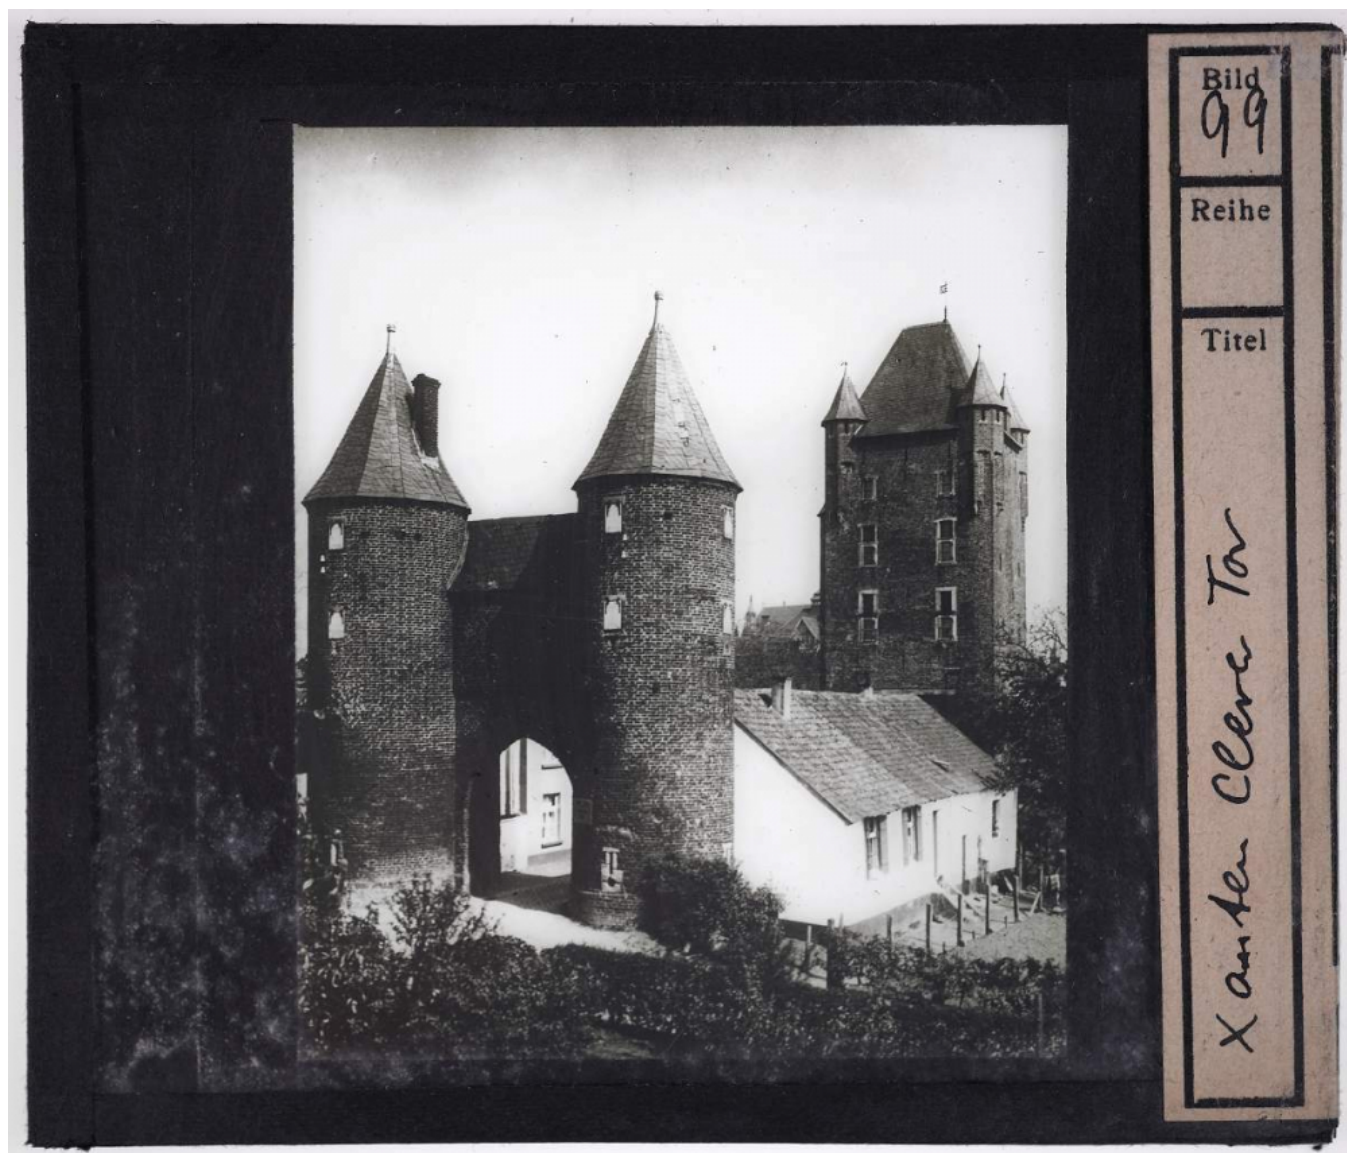 Bild
99
Reihe
Titel
Xanten Clever Tor